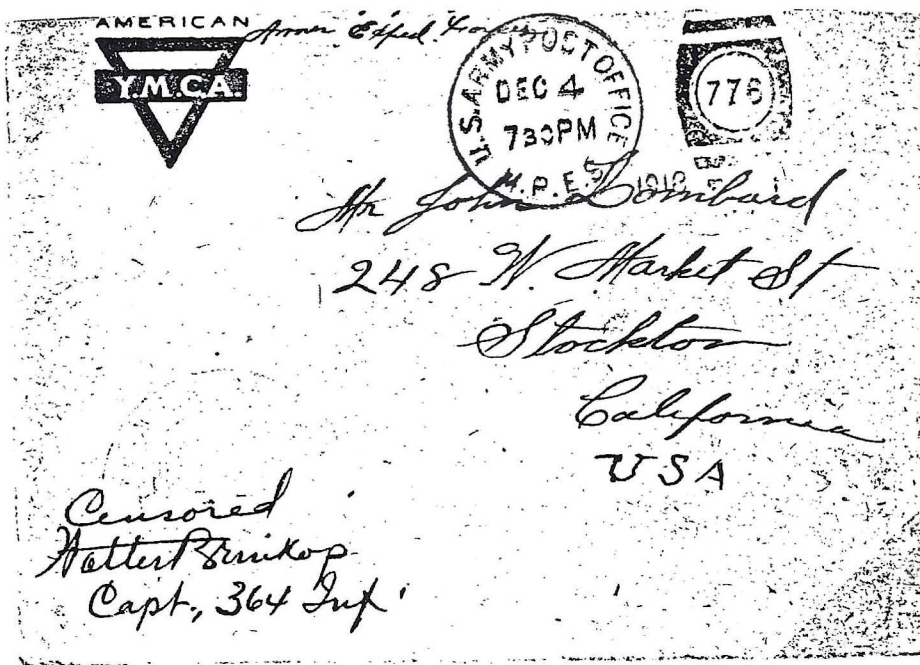 AMERICAN
Y.M.C.A.
Amer Exped. Forces
U.S. ARMY POST OFFICE
DEC 4
730PM
M.P.E.S.
776
Mr John Lombard
248 W. Market St
Stockton
California
USA
Censored
Capt., 364 Inf.